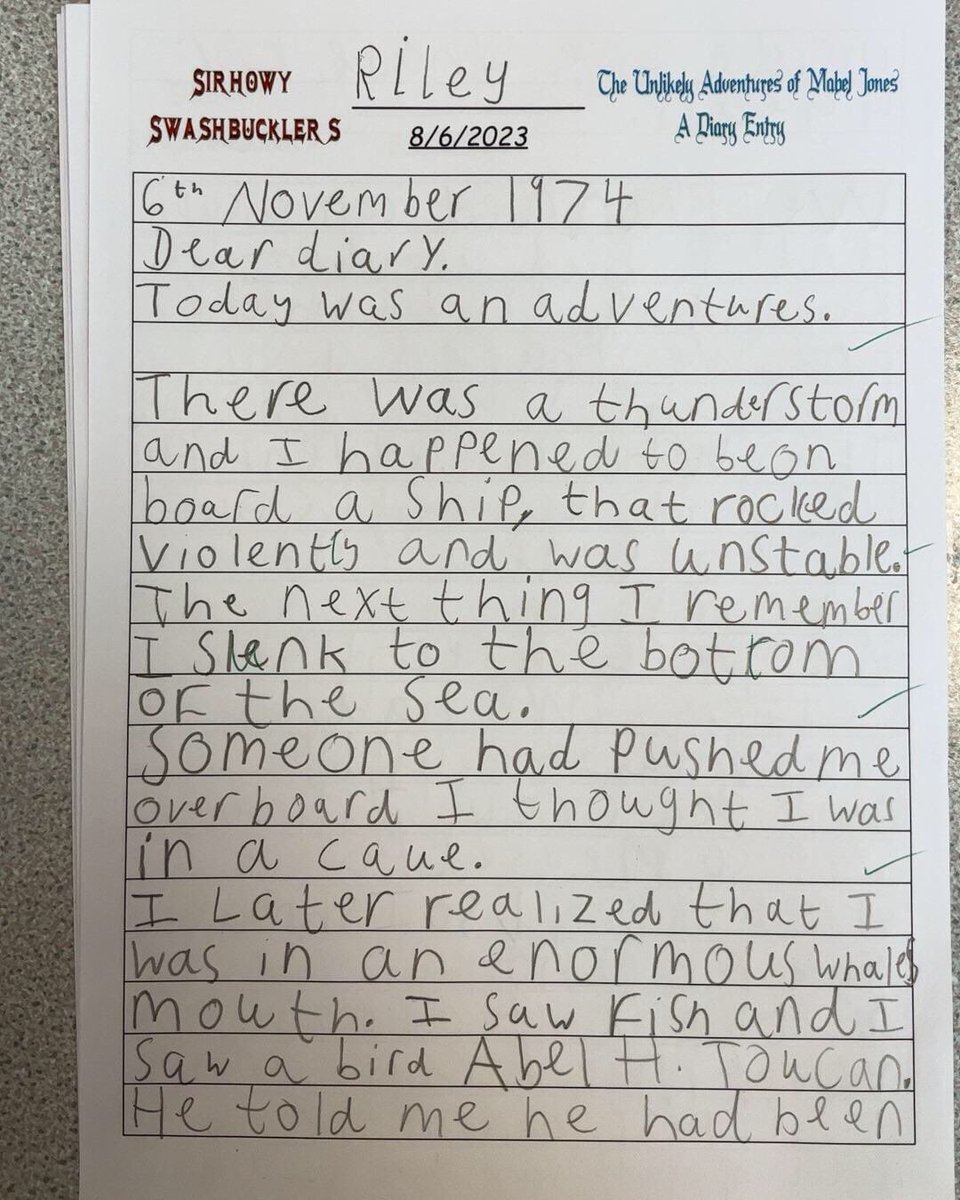 SIRHOWY
SWASHBUCKLERS
Riley
8/6/2023
The Unlikely Adventures of Mabel Jones
A Diary Entry
6th November 1974
Dear diary.
Today was an adventures.
There was a thunderstorm
and I happened to be on
board a ship, that rocked
violently and was unstable.
The next thing I remember
I to the bottom
of the sea.
Someone had pushed me
overboard I thought I was
in a cave.
I Later realized that I
was in an enormous whales
mouth. I saw fish and I
saw a bird Abel H. Toucan.
He told me he had been